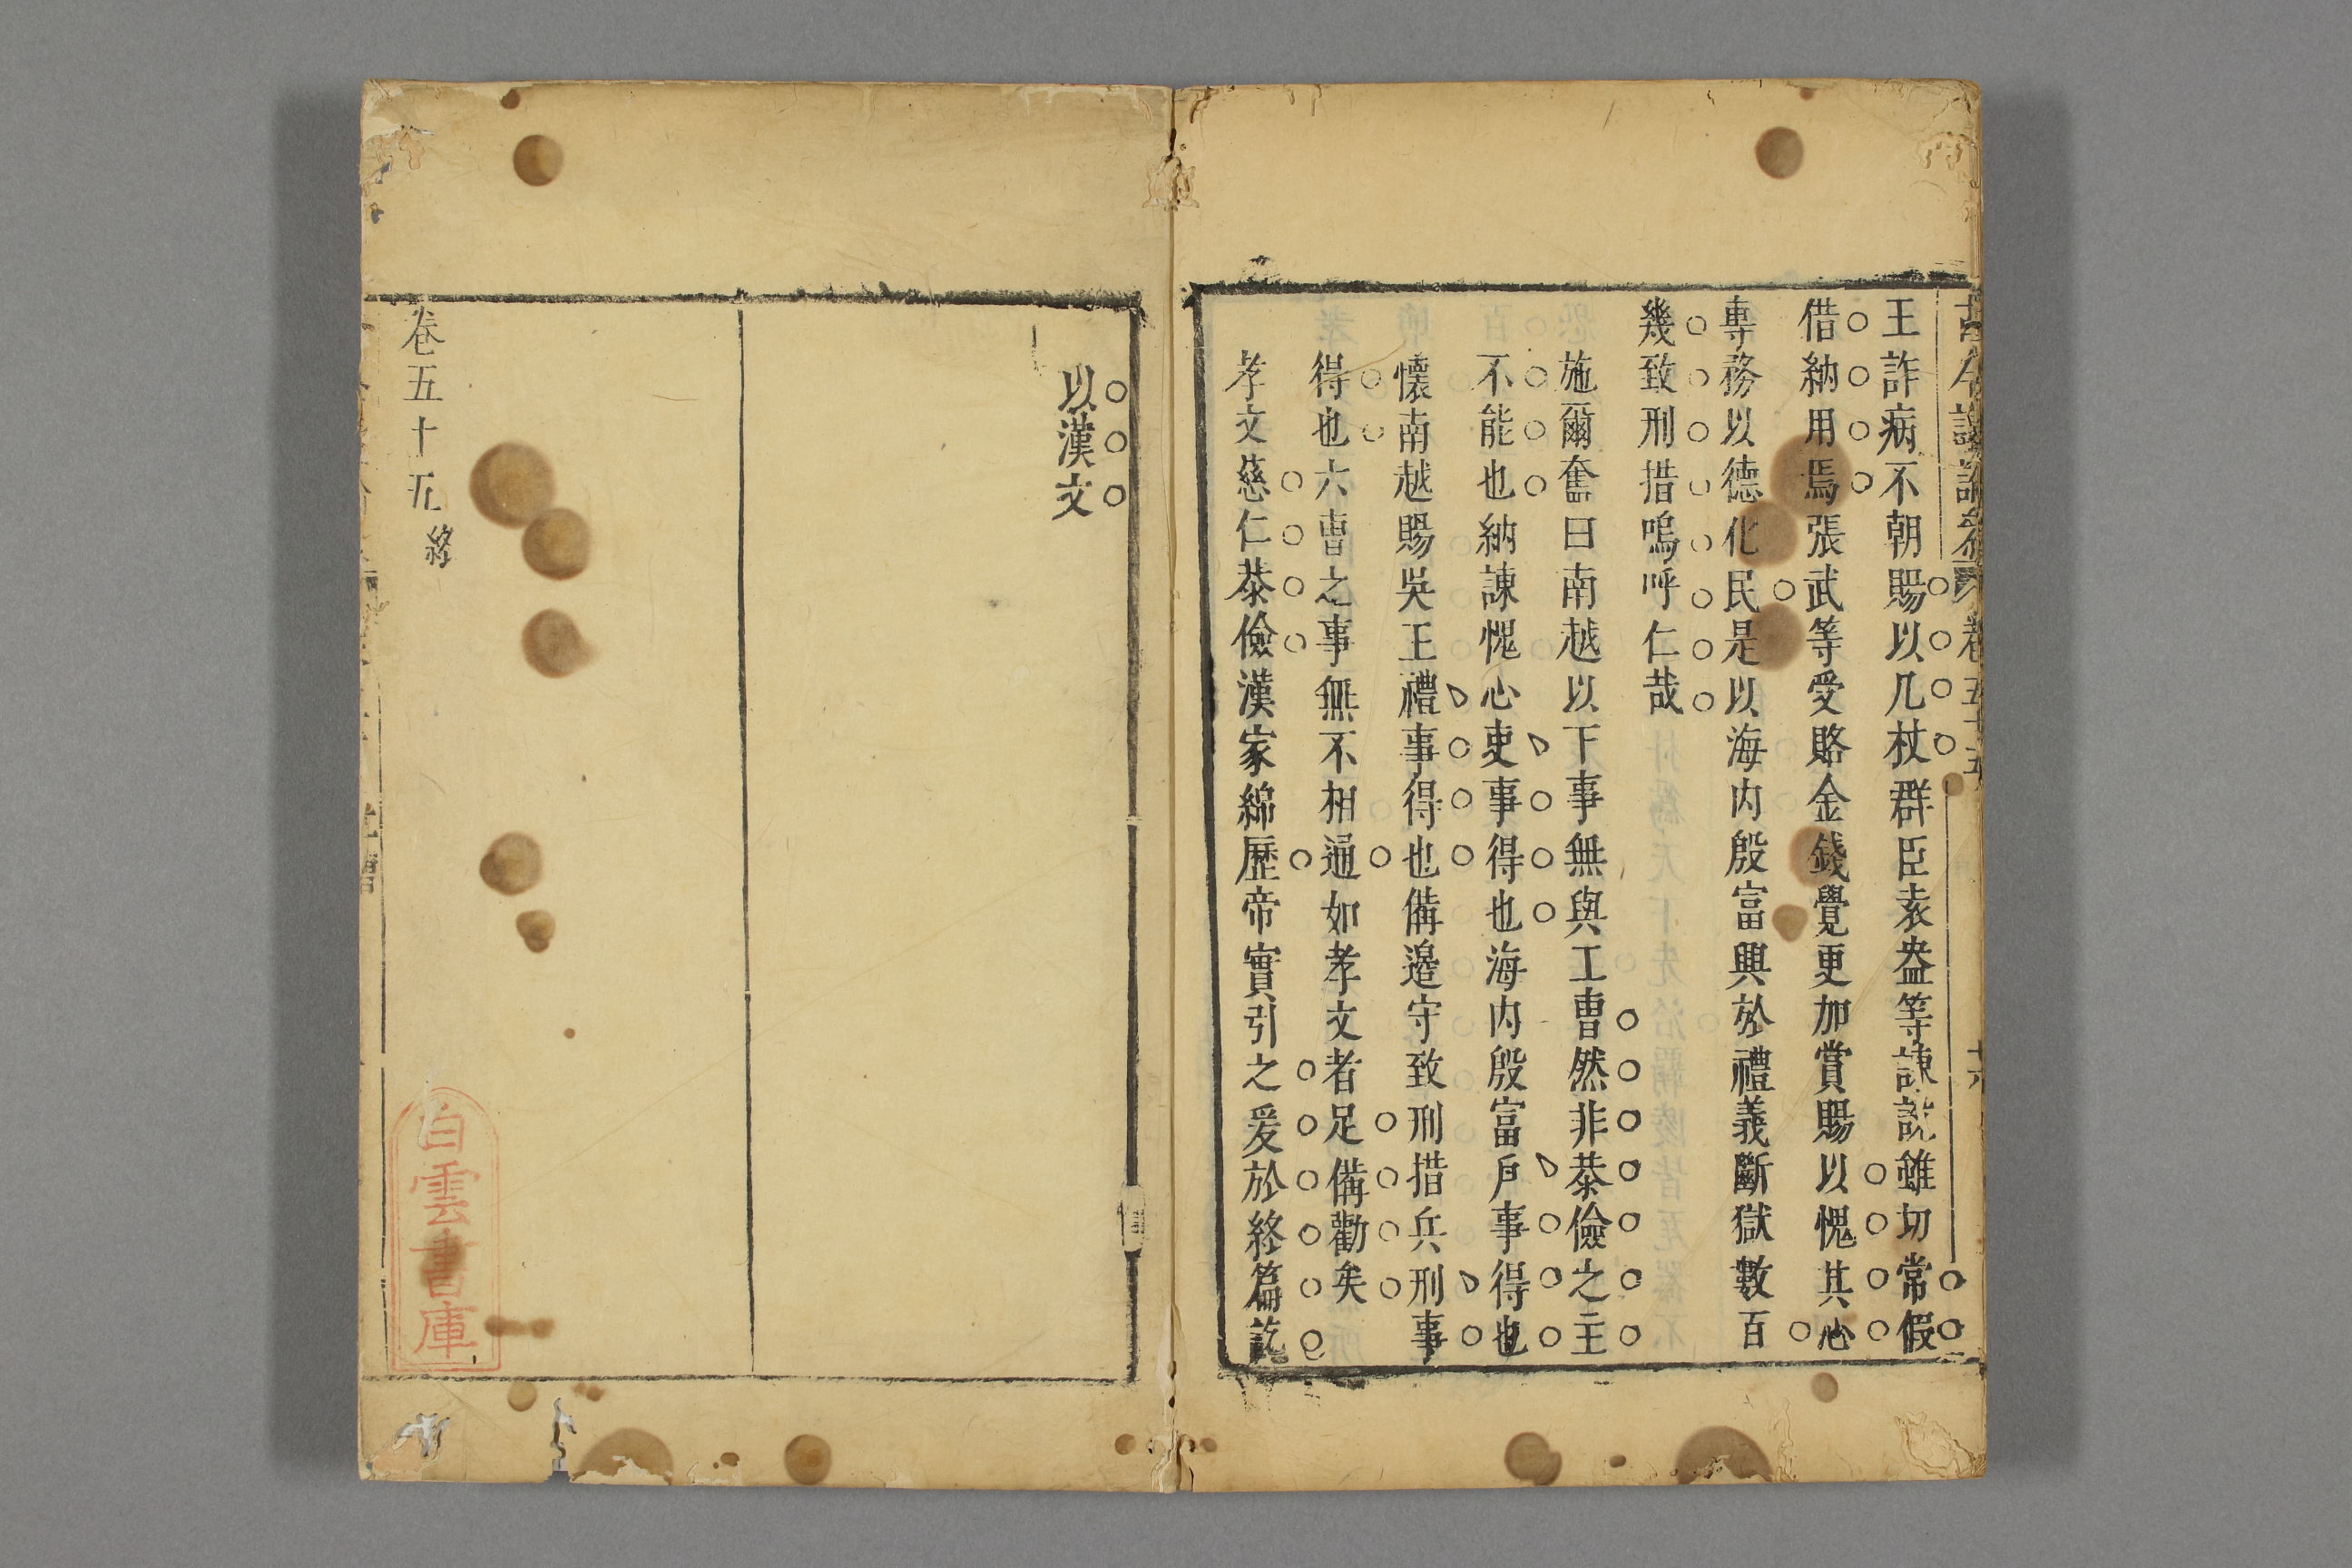 王詐病不朝賜以几杖群臣袁盎等諫說雖切常假
借納用焉張武等受賂金錢覺更加賞賜以愧其心
專務以德化民是以海内殷富興於禮義斷獄數百
幾致刑措嗚呼仁哉
施爾奮曰南越以下事無與工曹然非恭儉之主
不能也納諫愧心吏事得也海内殷富戶事得也
懷南越賜吳王禮事得也備邉守致刑措兵刑事
得也六曹之事無不相通如孝文者足備勸矣
孝文慈仁恭儉漢家綿歷帝實引之爰於終篇訖
以漢文
卷五十五終
白雲書庫